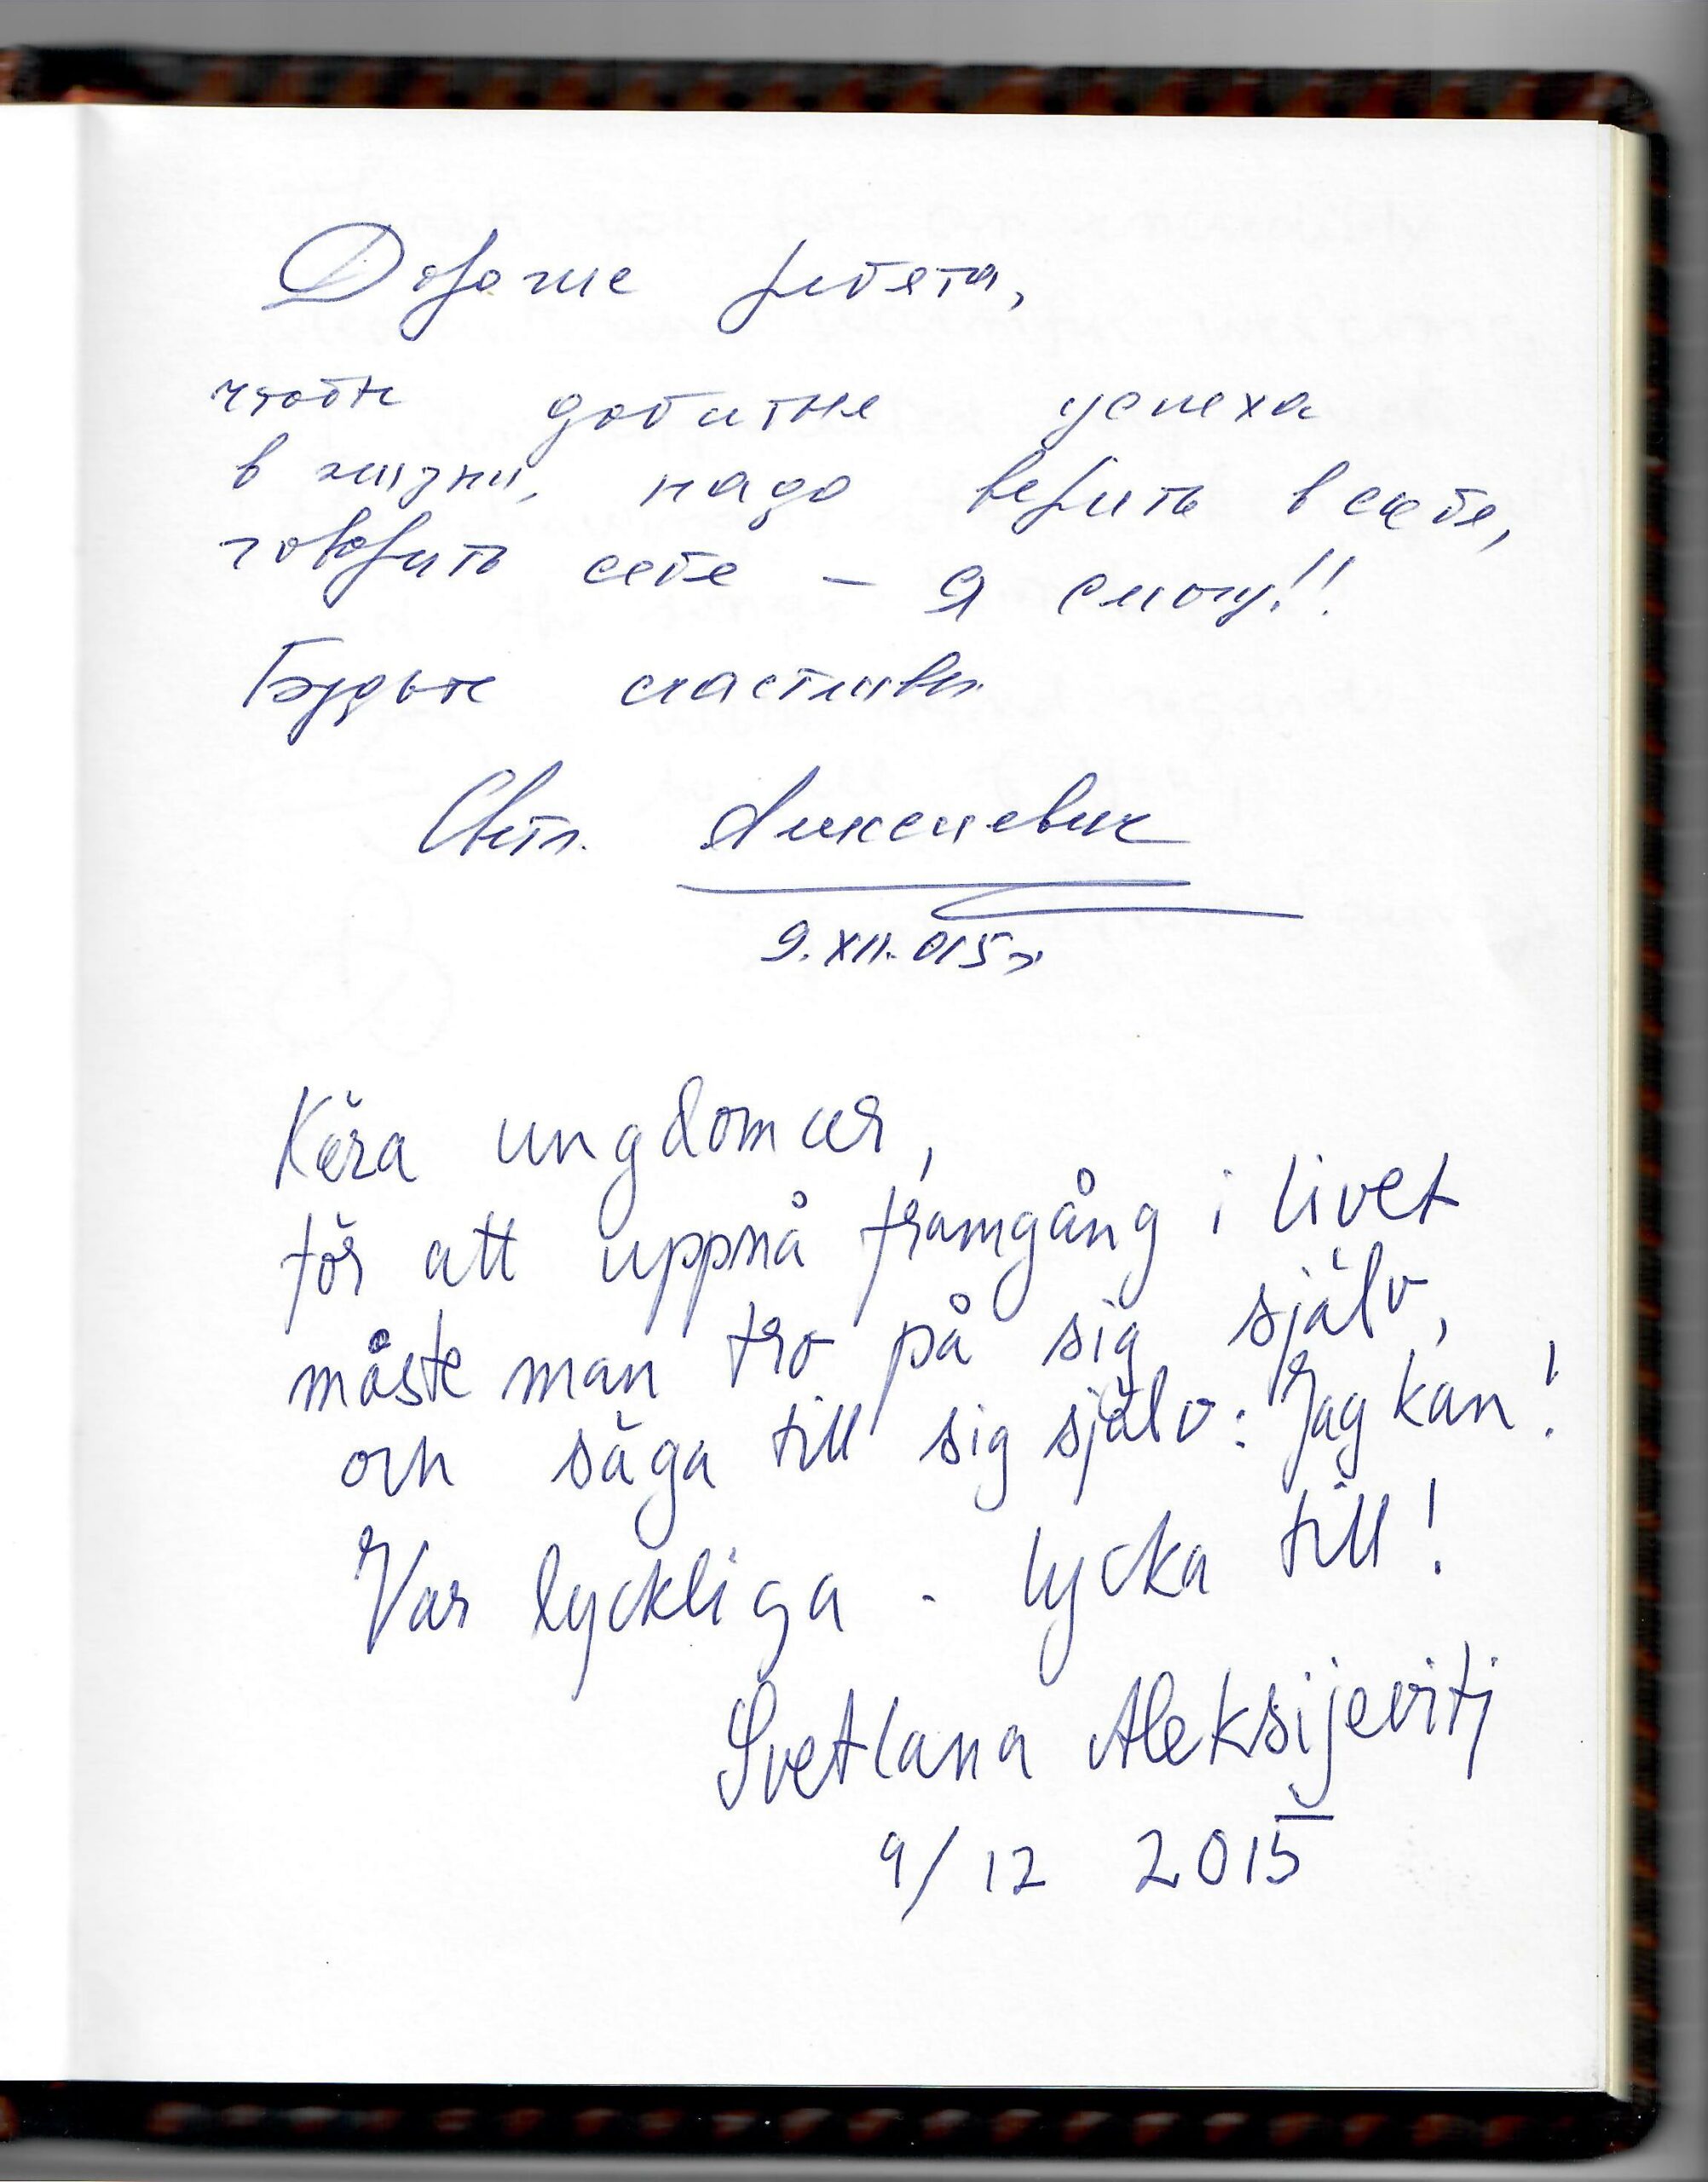 Дорогие ребята,
чтобы добиться успеха
в жизни, надо верить в себя,
говорить себе – Я смогу!!
Будьте счастливы
Светл. Алексиевич
9.XII.015г
Kära ungdomar,
för att uppnå framgång i livet
måste man tro på sig själv,
och säga till sig själv: Jag kan!
Var lyckliga - lycka till!
Svetlana Aleksijevitj
9/12 2015